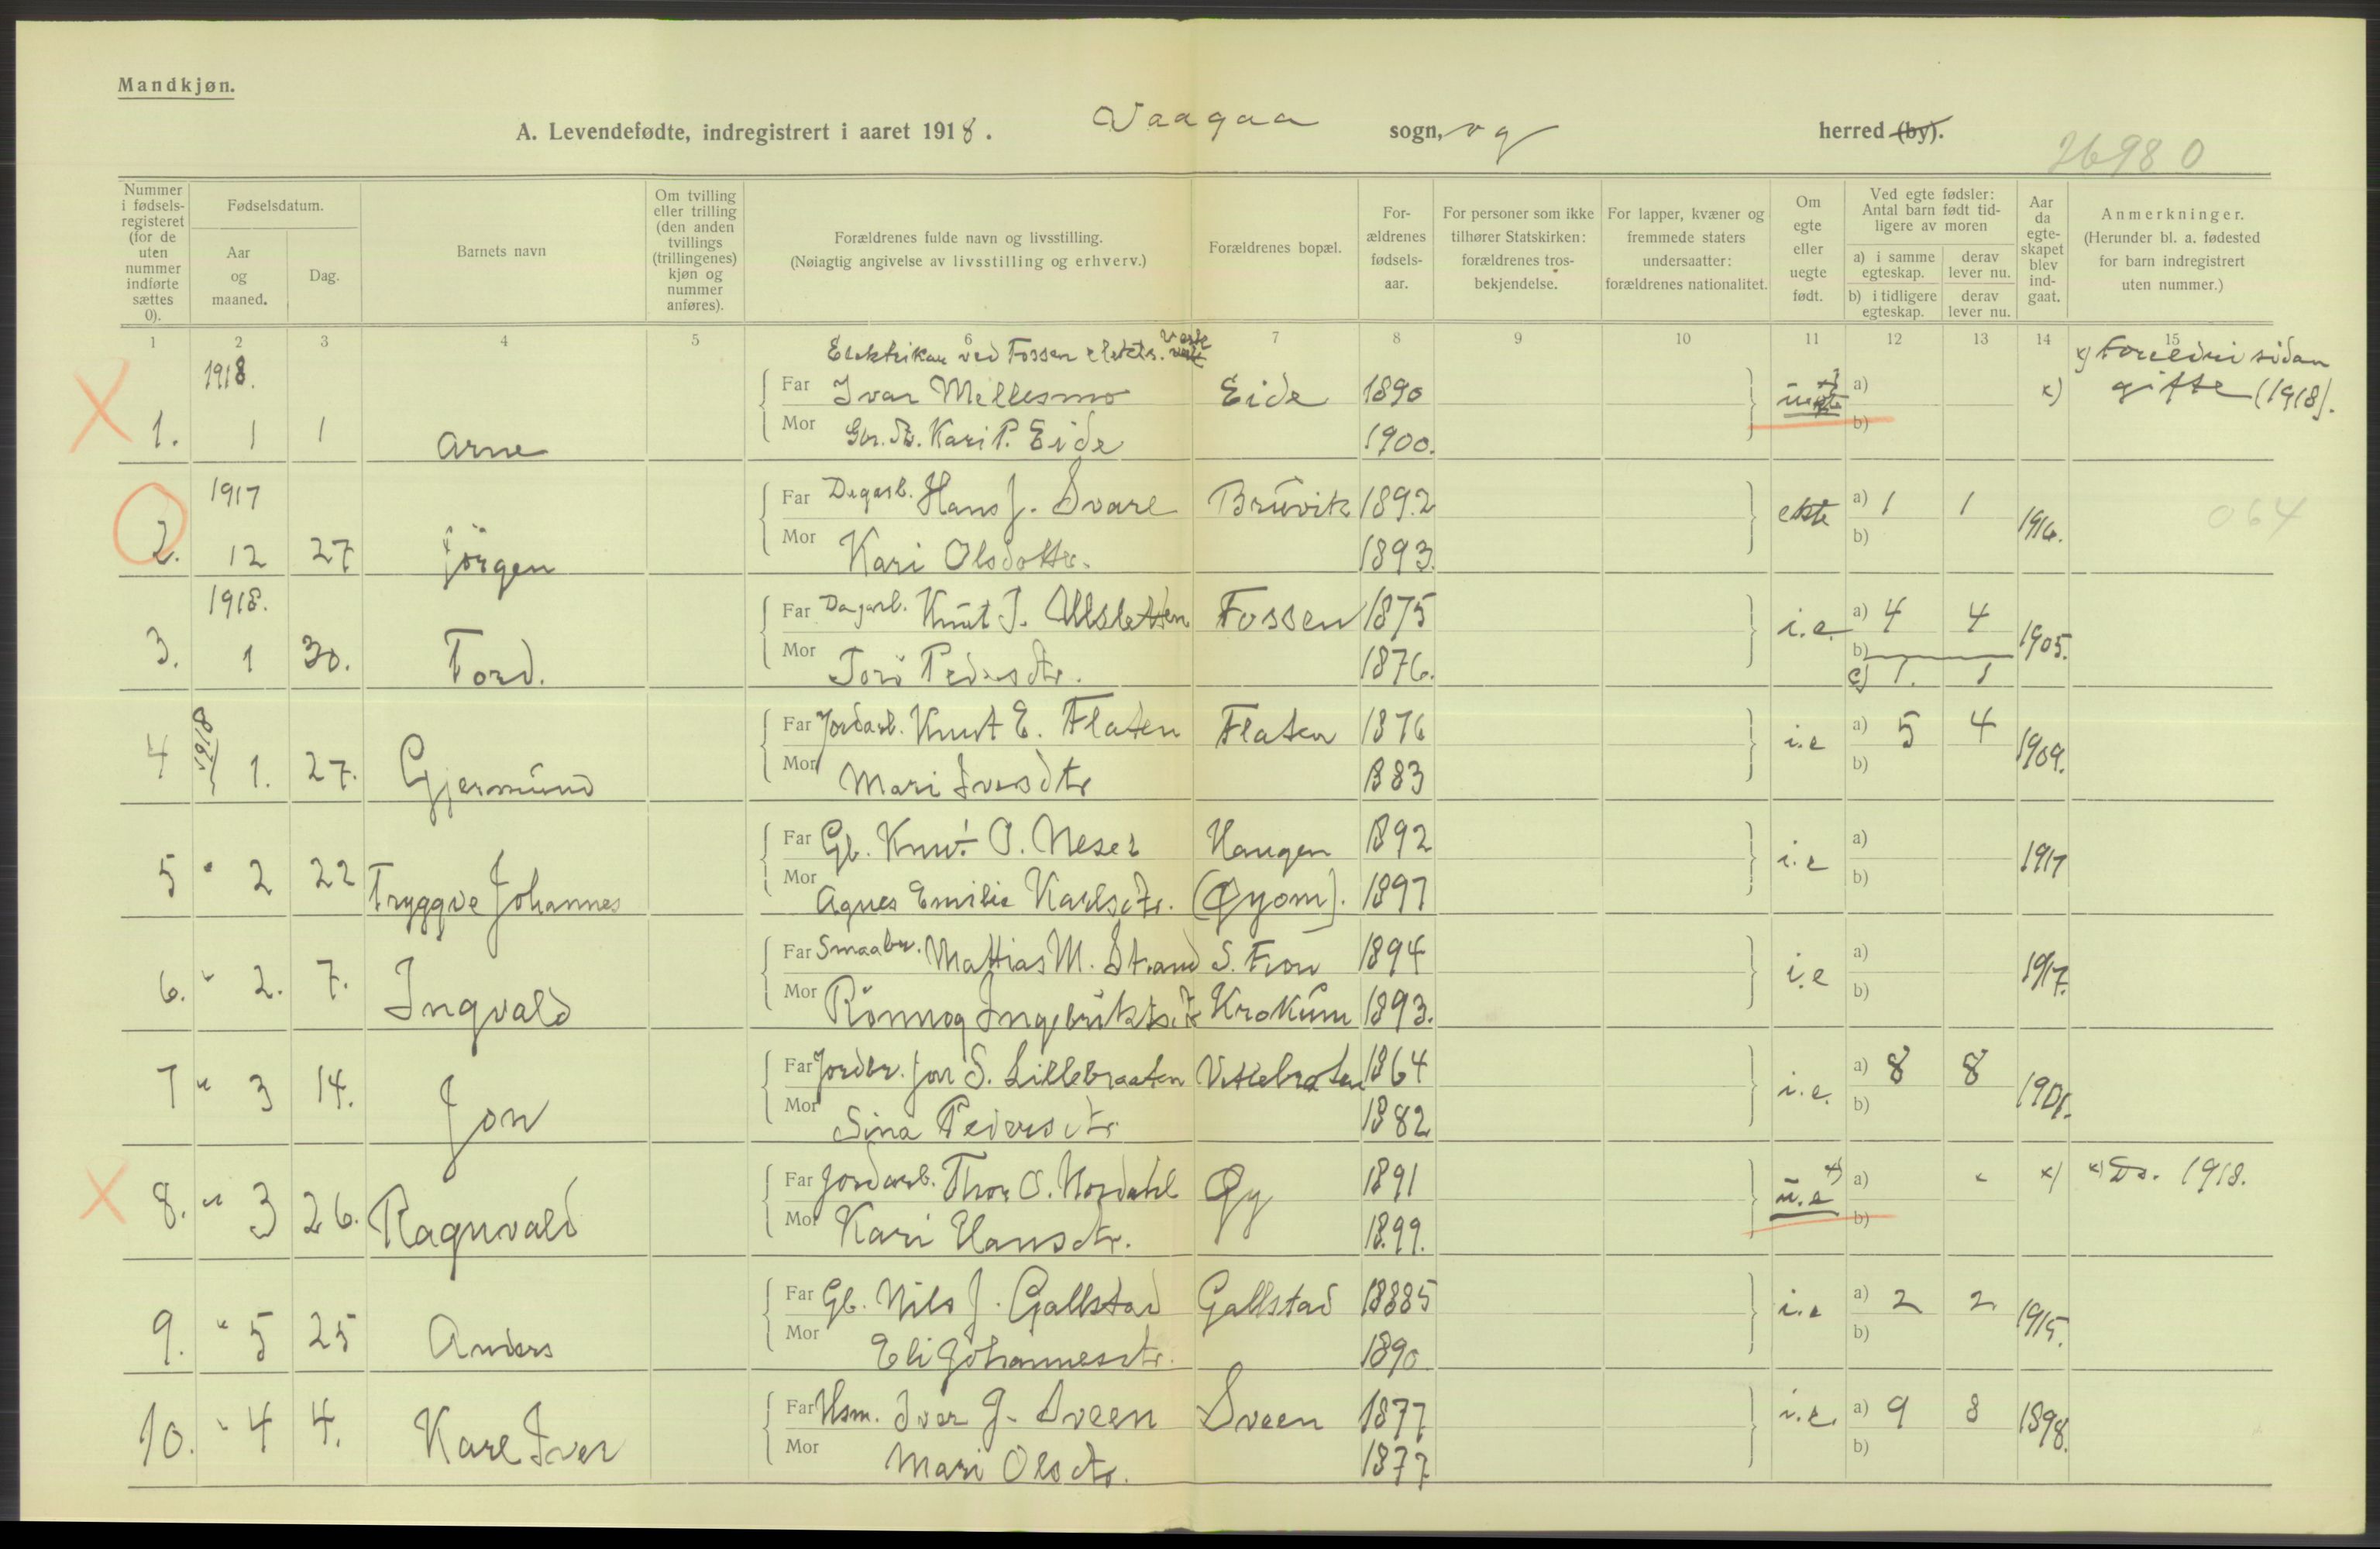 Mandkjøn.
A. Levendefødte, indregistrert i aaret 1918. Vaagaa sogn, og herred (by).
26980
Nummer i fødsels-registeret (for de uten nummer indførte sættes 0).
Fødselsdatum.
Aar og maaned.
Dag.
Barnets navn
Om tvilling eller trilling (den anden tvillings (trillingenes) kjøn og nummer anføres).
Forældrenes fulde navn og livsstilling.
(Nøiagtig angivelse av livsstilling og erhverv.)
Forældrenes bopæl.
For-ældrenes fødsels-aar.
For personer som ikke tilhører Statskirken: forældrenes tros-bekjendelse.
For lapper, kvæner og fremmede staters undersaatter: forældrenes nationalitet.
Om egte eller uegte født.
Ved egte fødsler: Antal barn født tid-ligere av moren
a) i samme egteskap.
derav lever nu.
b) i tidligere egteskap.
derav lever nu.
Aar da egte-skapet blev ind-gaat.
Anmerkninger.
(Herunder bl. a. fødested for barn indregistrert uten nummer.)
1 2 3 4 5 6 7 8 9 10 11 12 13 14 15
Elektrikar ved Fossen elektr. verk
1918. Far Ivar Mellesmo Eide 1890 uegte x) a) x) x) Foreldri sidan
gifte (1918).
1. 1 1 Arne Mor Kari P. Eide 1900. b)
1917 Far Dagarb. Hans J. Svare Bruvik 1892 ekte a) 1 1 1916. 064
2. 12 27 Jörgen Mor Kari Olsdottr. 1893. b)
1918. Far Dagarb. Knut J. Ullsletten Fossen 1875 i.e. a) 4 4 1905.
3. 1 30. Tord. Mor Tori Pedersdtr. 1876. b)
c) 1. 1
4 1918 1. 27. Gjermund Far Jordarb. Knut E. Flaten Flaten 1876 i.e a) 5 4 1909.
Mor Mari Iversdtr 1883 b)
5 " 2 22 Tryggve Johannes Far Gb. Knut O. Neset Haugen 1892 i.e a) 1917
Mor Agnes Emilie Karlsdtr. (Øyom). 1897 b)
6. " 2. 7. Ingvald Far Smaabr. Mathias M. Strand S. Fron 1894 i.e a) 1917.
Mor Rönnog Ingebriktsdtr Krokum 1893. b)
7 " 3 14. Jon Far Jordbr. Jon S. Lillebraaten Vetlebroten 1864 i.e. a) 8 8 1901.
Mor Sina Pedersdtr. 1882 b)
8. " 3 26. Ragnvald Far Jordarb. Thor O. Nordahl Øy 1891 u.e x) a) x) x) Do. 1918.
Mor Kari Hansdtr. 1899. b)
9. " 5 25 Anders Far Gb. Nils J. Gallstad Gallstad 18885 i.e a) 2 2 1915.
Mor Eli Johannesdtr. 1890 b)
10. " 4 4. Kare Iver Far Hsm. Iver J. Sveen Sveen 1877 i.e. a) 9 8 1898.
Mor Mari Olsdtr. 1877 b)